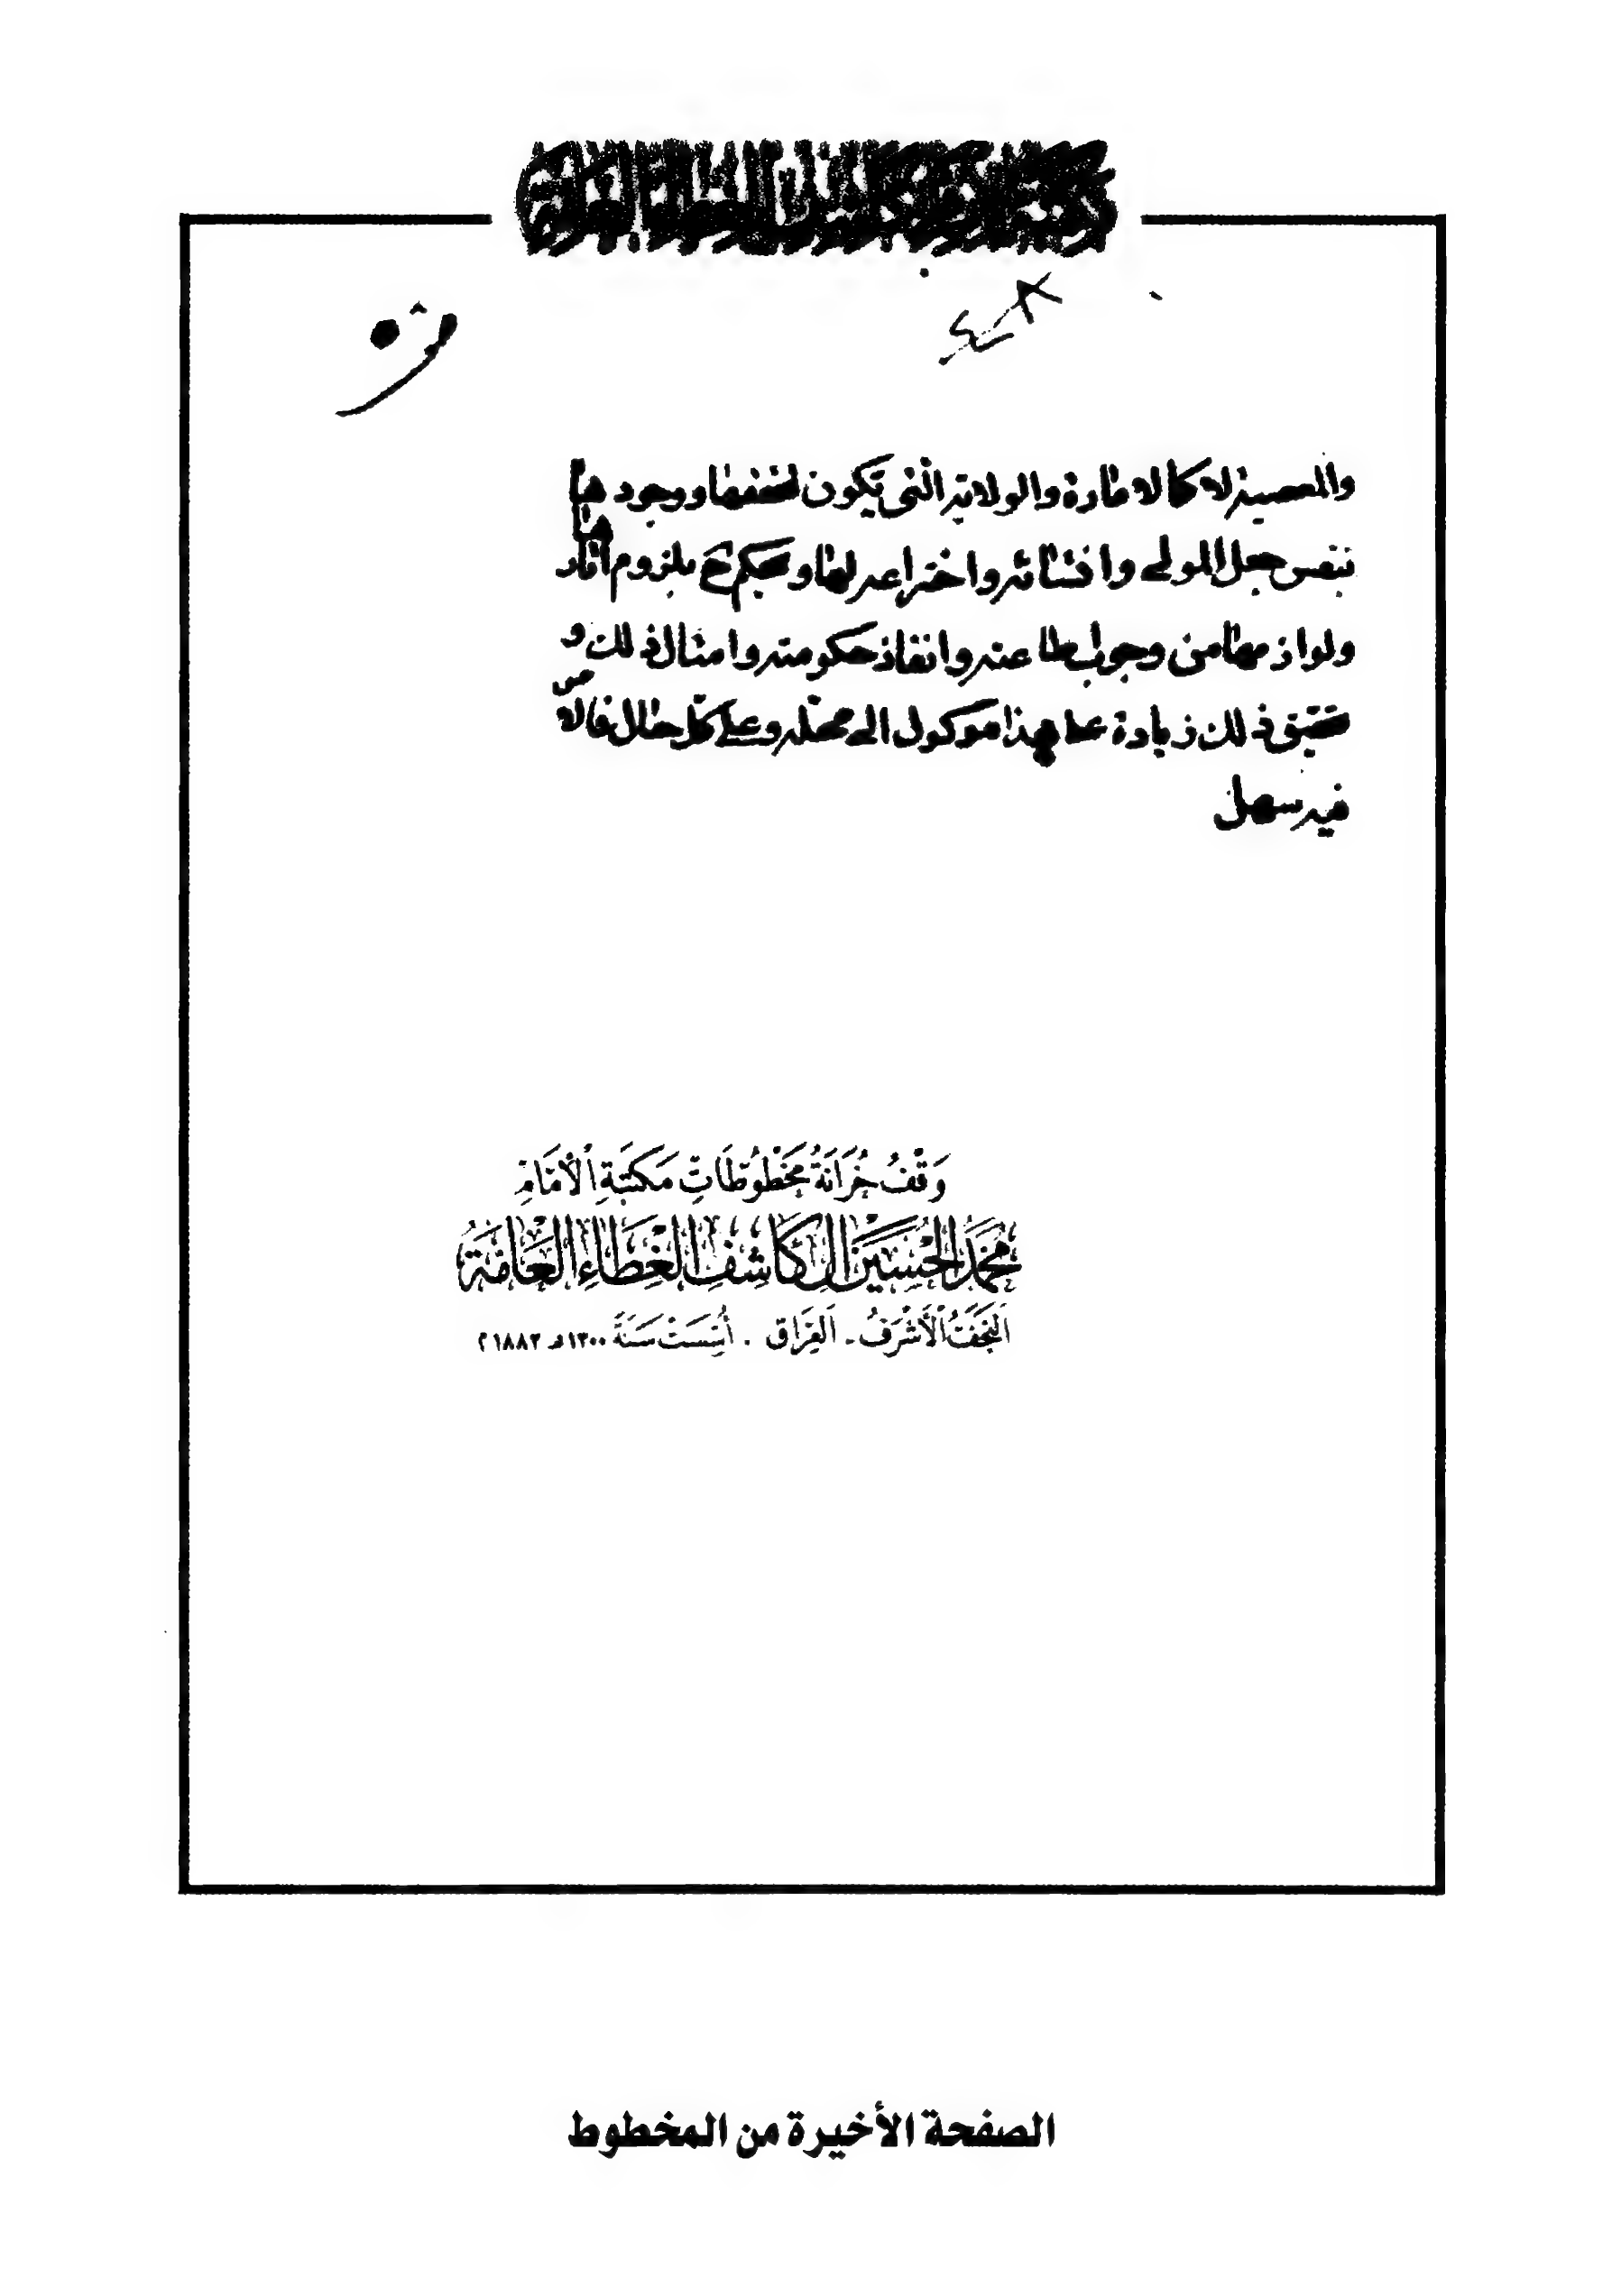 والمعصية لا كالامارة والولاية التي تكون تحققها ووجودها
بنفس جعل المولى وانشائه واختراعه لها وبحكم بلزوم آثارها
ولوازمها من وجوب اطاعته وانفاذ حكومته وامثال ذلك و
تحقيق ذلك زيادة على هذا موكول الى محله وعلى كل حال فالامر
فيه سهل
وَقْفُ خِزَانَةُ مَخْطُوطَاتِ مَكتَبَةِ الْاِمَامِ
مُحَمَّدَ الْحُسَيْن آل كَاشِفِ الْغِطَاءِ الْعَامَّةِ
اَلنَّجَفُ الْأَشْرَفُ - اَلعِرَاق . أُسِّسَتْ سَنَةَ ١٣٠٠هـ ١٨٨٣م
الصفحة الأخيرة من المخطوط